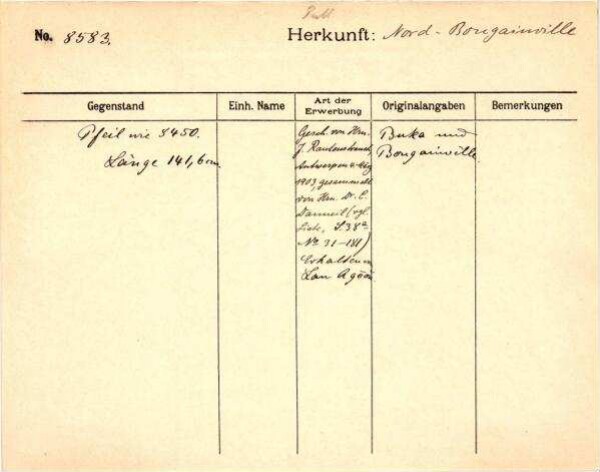 No. 8583. Herkunft: Nord-Bougainville
Gegenstand Einh. Name Art der Erwerbung Originalangaben Bemerkungen
Pfeil wie 8450.
Länge 141,6 cm
Gesch. von Hrn.
J. Rautenstrauch,
Antwerpen
1903, gesammelt
von Hrn. Dr. E.
(vgl.
Liste, S. 38a.
No 31-181)
Erhalten in
Buka und
Bougainville.